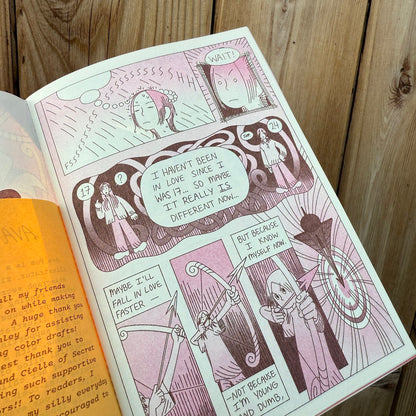 FSSSSSSSSSSSSSHH
WAIT!
17
?
24
I HAVEN'T BEEN
IN LOVE SINCE I
WAS 17... SO MAYBE
IT REALLY IS
DIFFERENT NOW...
MAYBE I'LL
FALL IN LOVE
FASTER —
—NOT BECAUSE
I'M YOUNG
AND DUMB,
BUT BECAUSE
I KNOW
MYSELF NOW.
all my friends
on while making
A huge thank you
nley for assisting
ng color drafts!
est thank you to
and Cielle of Secret
ing such supportive
rs!! To readers, I
my silly everyday
couraged to